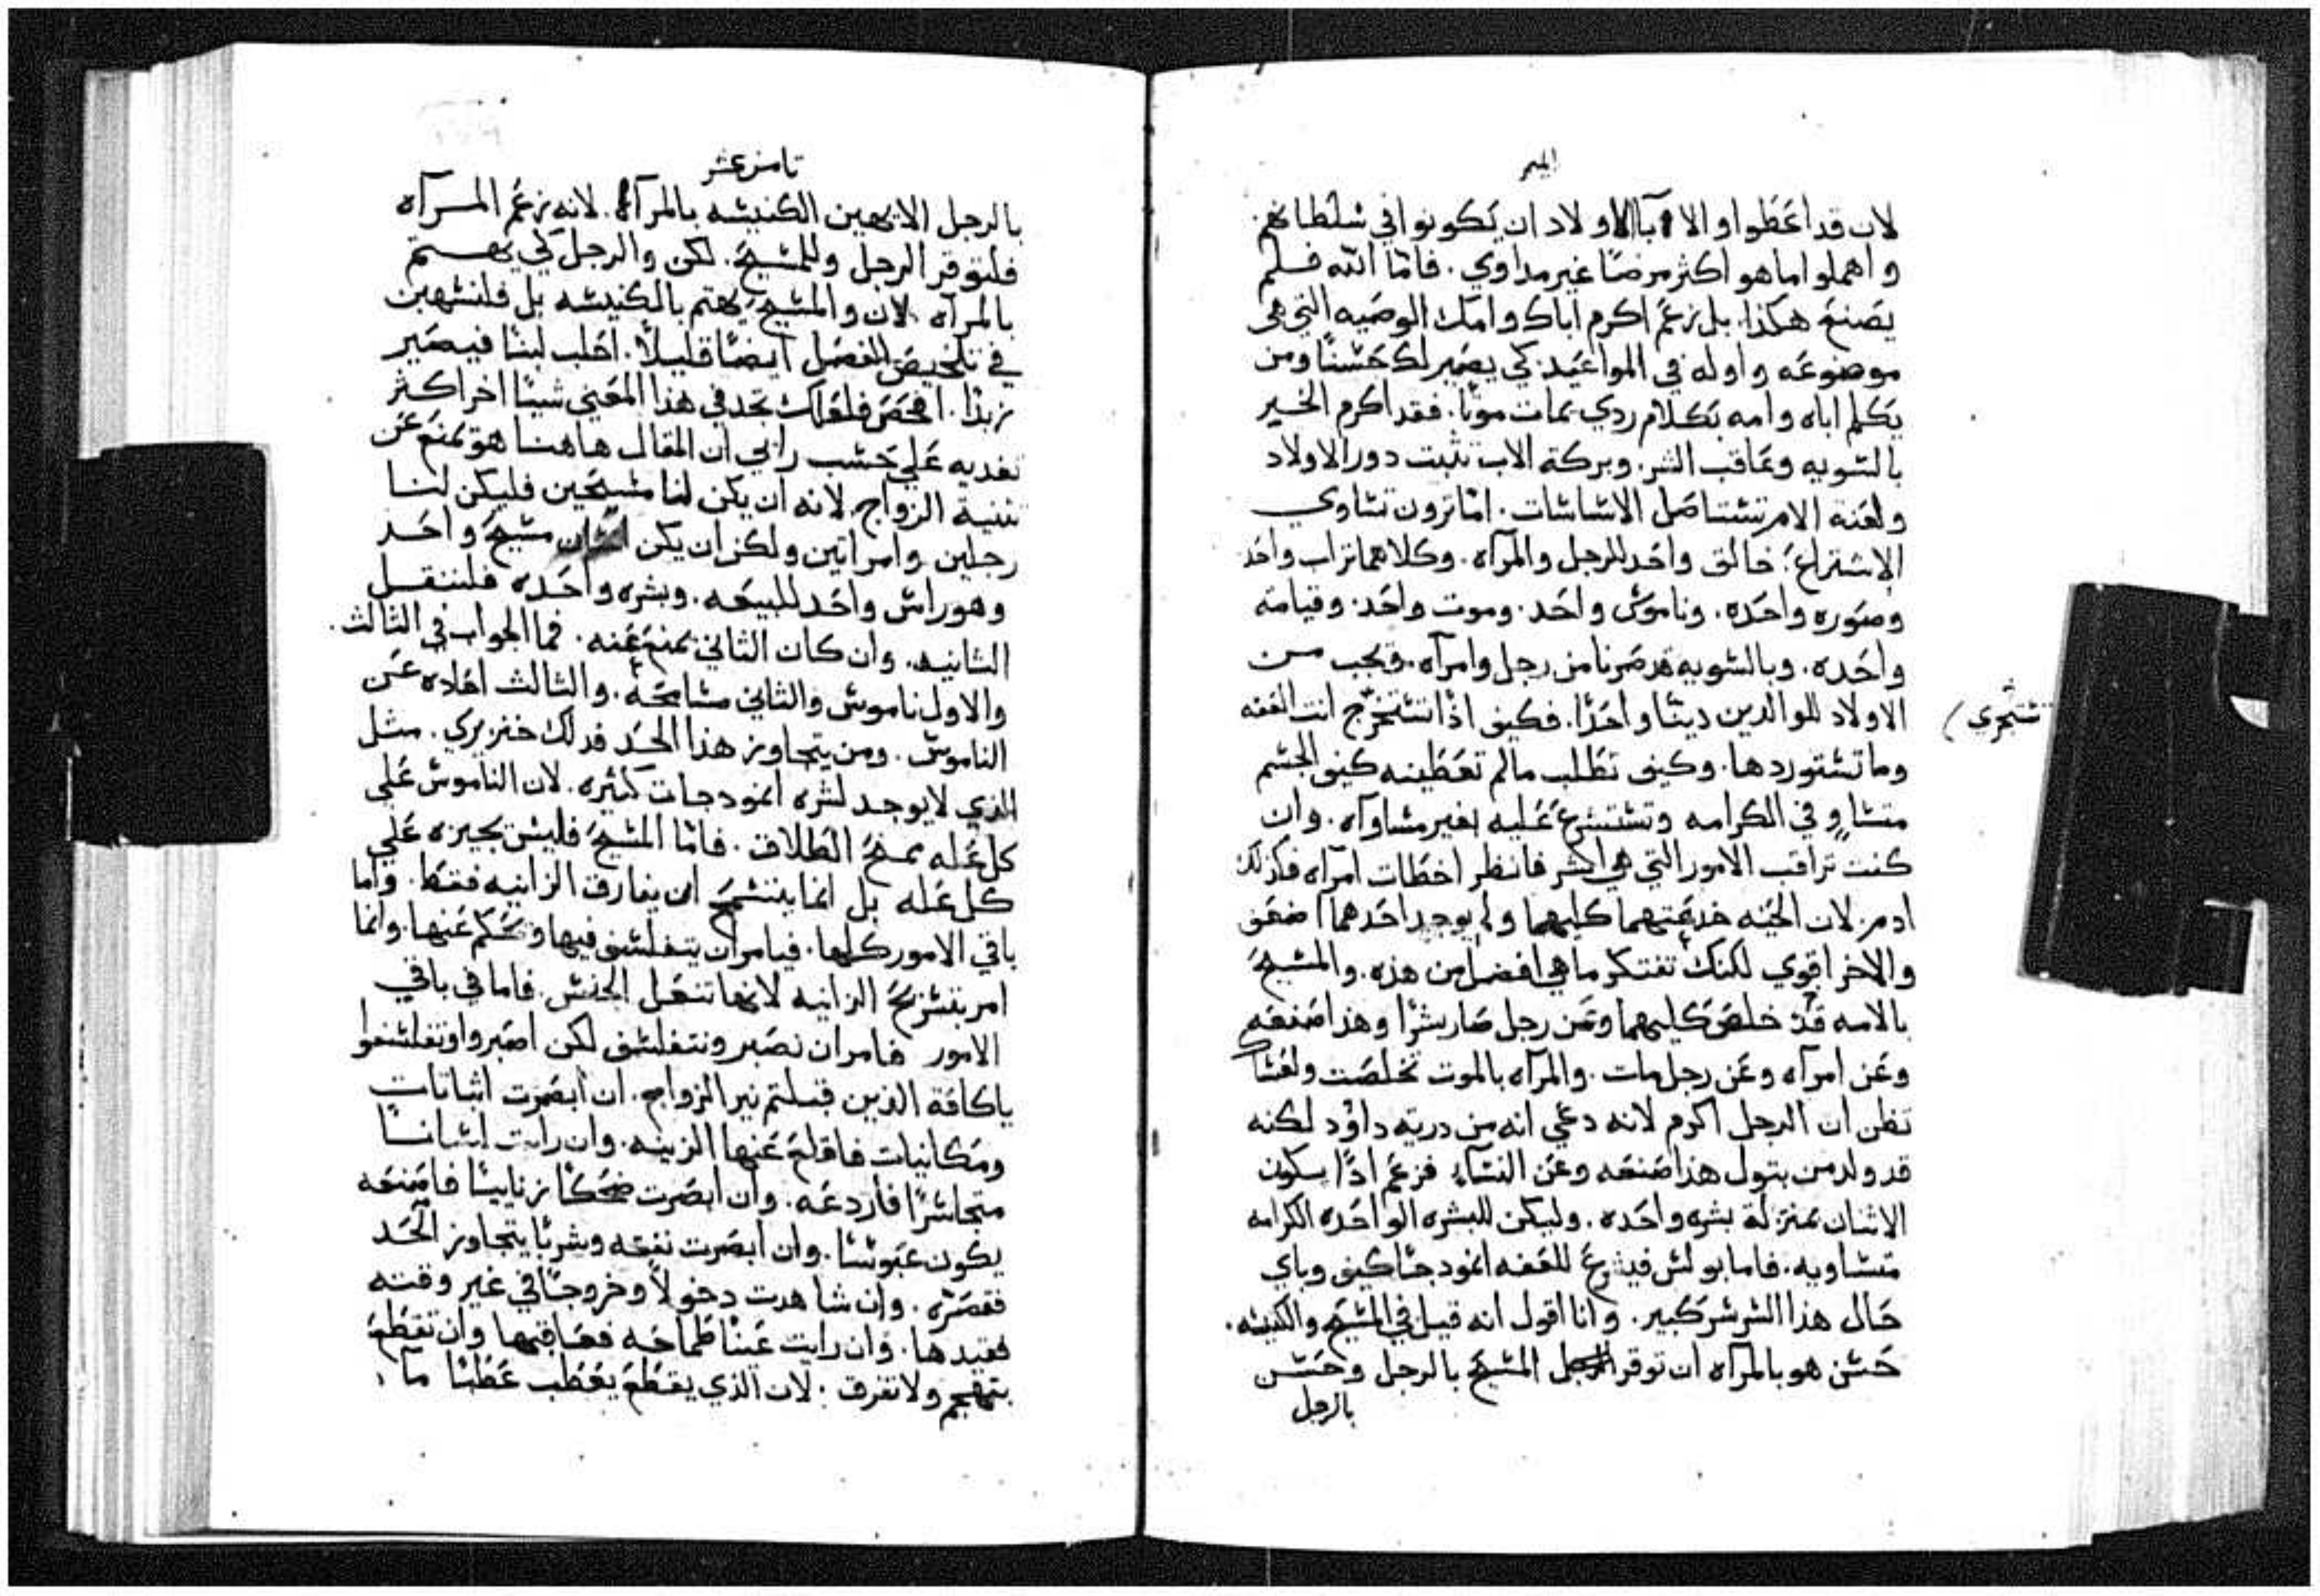 الميمر
لان قد اعطوا والاا بآ الاولاد ان يكونوا في سلطانهم.
واهملوا ما هو اكثر مرضًا غير مداوي. فامّا الله فلم
يصنع هكذا. بل زعم اكرم اباك وامك الوصيه التي هي
موضوعه واوله في المواعيد. كي يصير لك حسنًا ومن
يكلم اباه وامه بكلام ردي يمات موتًا. فقد اكرم الخير
بالسويه وعاقب الشر. وبركة الاب تثبت دور الاولاد
ولعنة الام تستاصل الاساسات. امّا ترون تساوي
الاشتراع: خالق واحد للرجل والمرآه. وكلاهما تراب واحد
وصوره واحده. وناموس واحد. وموت واحد. وقيامه
واحده. وبالسويه قد صرنا من رجل وامرآه. ويجب من
الاولاد للوالدين دينًا واحدًا. فكيف اذًا تستخرج انت العفه
تستجري)
وما تستوردها. وكيف تطلب مالم تعطينه كيف الجسم
متساوٍ في الكرامه وتستشرع عليه بغير مساوآه. وان
كنت تراقب الامور التي هي اشر فانظر اخطات امرآه فكذلك
ادم. لان الحيّه خدعتهما كليهما ولم يوجد احدهما اضعف
والاخر اقوي لكنك تفتكر ما هي افضل من هذه. والمسيح
بالامه قد خلص كليهما وعن رجل صار بشرًا وهذا صنعه
وعن امرآه وعن رجل مات. والمرآه بالموت تخلصت ولعساك
تظن ان الرجل اكرم لانه دعي انه من درية داوُد لكنه
قد ولد من بتول هذا صنعه وعن النسآء فزعم اذًا يكون
الاثنان بمنزلة بشره واحده. وليكن للبشره الواحده الكرامه
متساويه. فاما بولس فيشرع للعفه انمودجًا كيف وباي
حال هذا السر سر كبير. وانا اقول انه قيل في المسيح والكنيسه.
حسن هو بالمرآه ان توقر المسيح بالرجل وحسن
بالرجل
ثامن عشر
بالرجل الا يهين الكنيسه بالمرآه. لانه زعم المرآه
فلتوقر الرجل وللمسيح. لكن والرجل كي يهتم
بالمرآه لان والمسيح يهتم بالكنيسه بل فلنسهبن
في تلخيص الفصل ايضًا قليلاً. احلب لبنًا فيصير
زبدًا. افحص فلعلك تجد في هذا المعني شيئًا اخر اكثر
تغديه علي حسب رايي ان المقال هاهنا هو يمنع عن
تثنية الزواج. لانه ان يكن لنا مسيحين فليكن لنا
رجلين وامراتين ولكن ان يكن مسيح واحد
وهو راس واحد للبيعه. وبشره واحده فلتنقل
الثانيه. وان كان الثاني يمنع عنه. فما الجواب في الثالث.
والاول ناموس والثاني مسامحه. والثالث احاده عن
الناموس. ومن يتجاوز هذا الحد فدلك خنزيري. مثل
الذي لا يوجد لشره انمودجات كثيره. لان الناموس علي
كل عله يمنح الطلاق. فامّا المسيح فليس يجيزه علي
كل عله بل انما يسمح ان يفارق الزانيه فقط. واما
باقي الامور كلها. فيامر ان يتفلسف فيها ويحكم عنها. وانما
امر بتسريح الزانيه لانها تنغل الجنس. فاما في باقي
الامور فامر ان نصبر ونتفلسف لكن اصبروا وتفلسفوا
ياكافة الذين قبلتم نير الزواج. ان ابصرت اثباتات
ومكانيات فاقلع عنها الزينه. وان رايت لسانًا
متجاسرًا فاردعه. وان ابصرت ضحكًا زنايبيًا فاصنعه
يكون عبوسًا. وان ابصرت نفقه وشربًا يتجاوز الحد
فقصره. وان شاهدت دخولاً وخروجًا في غير وقته
فقيدها. وان رايت عينًا طماحه فعاقبها وان تقطع
بتهجم ولا تفرق: لان الذي يقطع يعطب عطبًا مآ.